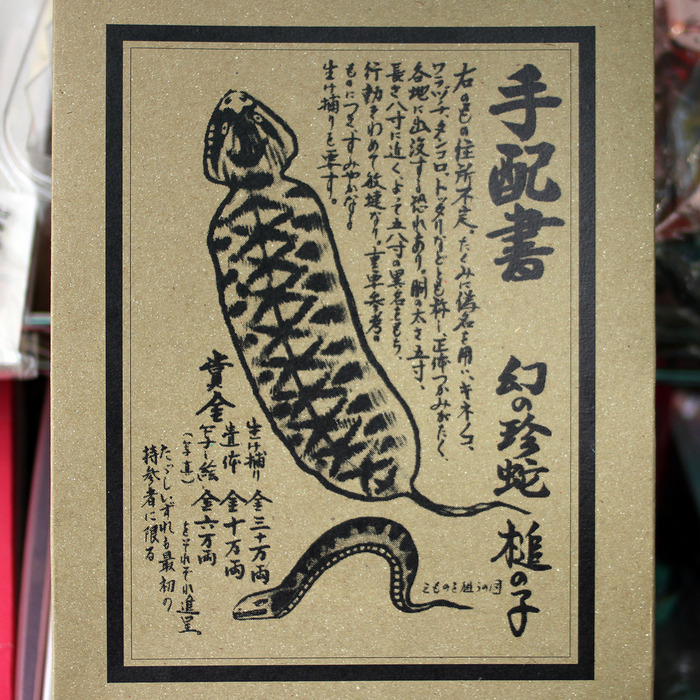 手配書
幻の珍蛇 槌の子
右のもの住所不定、たくみに偽名を用い、キネノコ、
ワラヅチ、タンコロ、トックリなどとも称し、正体つかみがたく
各地に出没する恐れあり。胴の太さ五寸、
長さ八寸に近く、よって五八寸の異名をもち、
行動きわめて敏捷なり。重要参考
ものにつき、すみやかなる
生け捕りを要す。
賞金
生け捕り 金三十万両
遺体 金十万両
写し絵 金六万両
(写真)
をそれぞれ進呈
ただしいずれも最初の
持参者に限る
えものを狙うの図